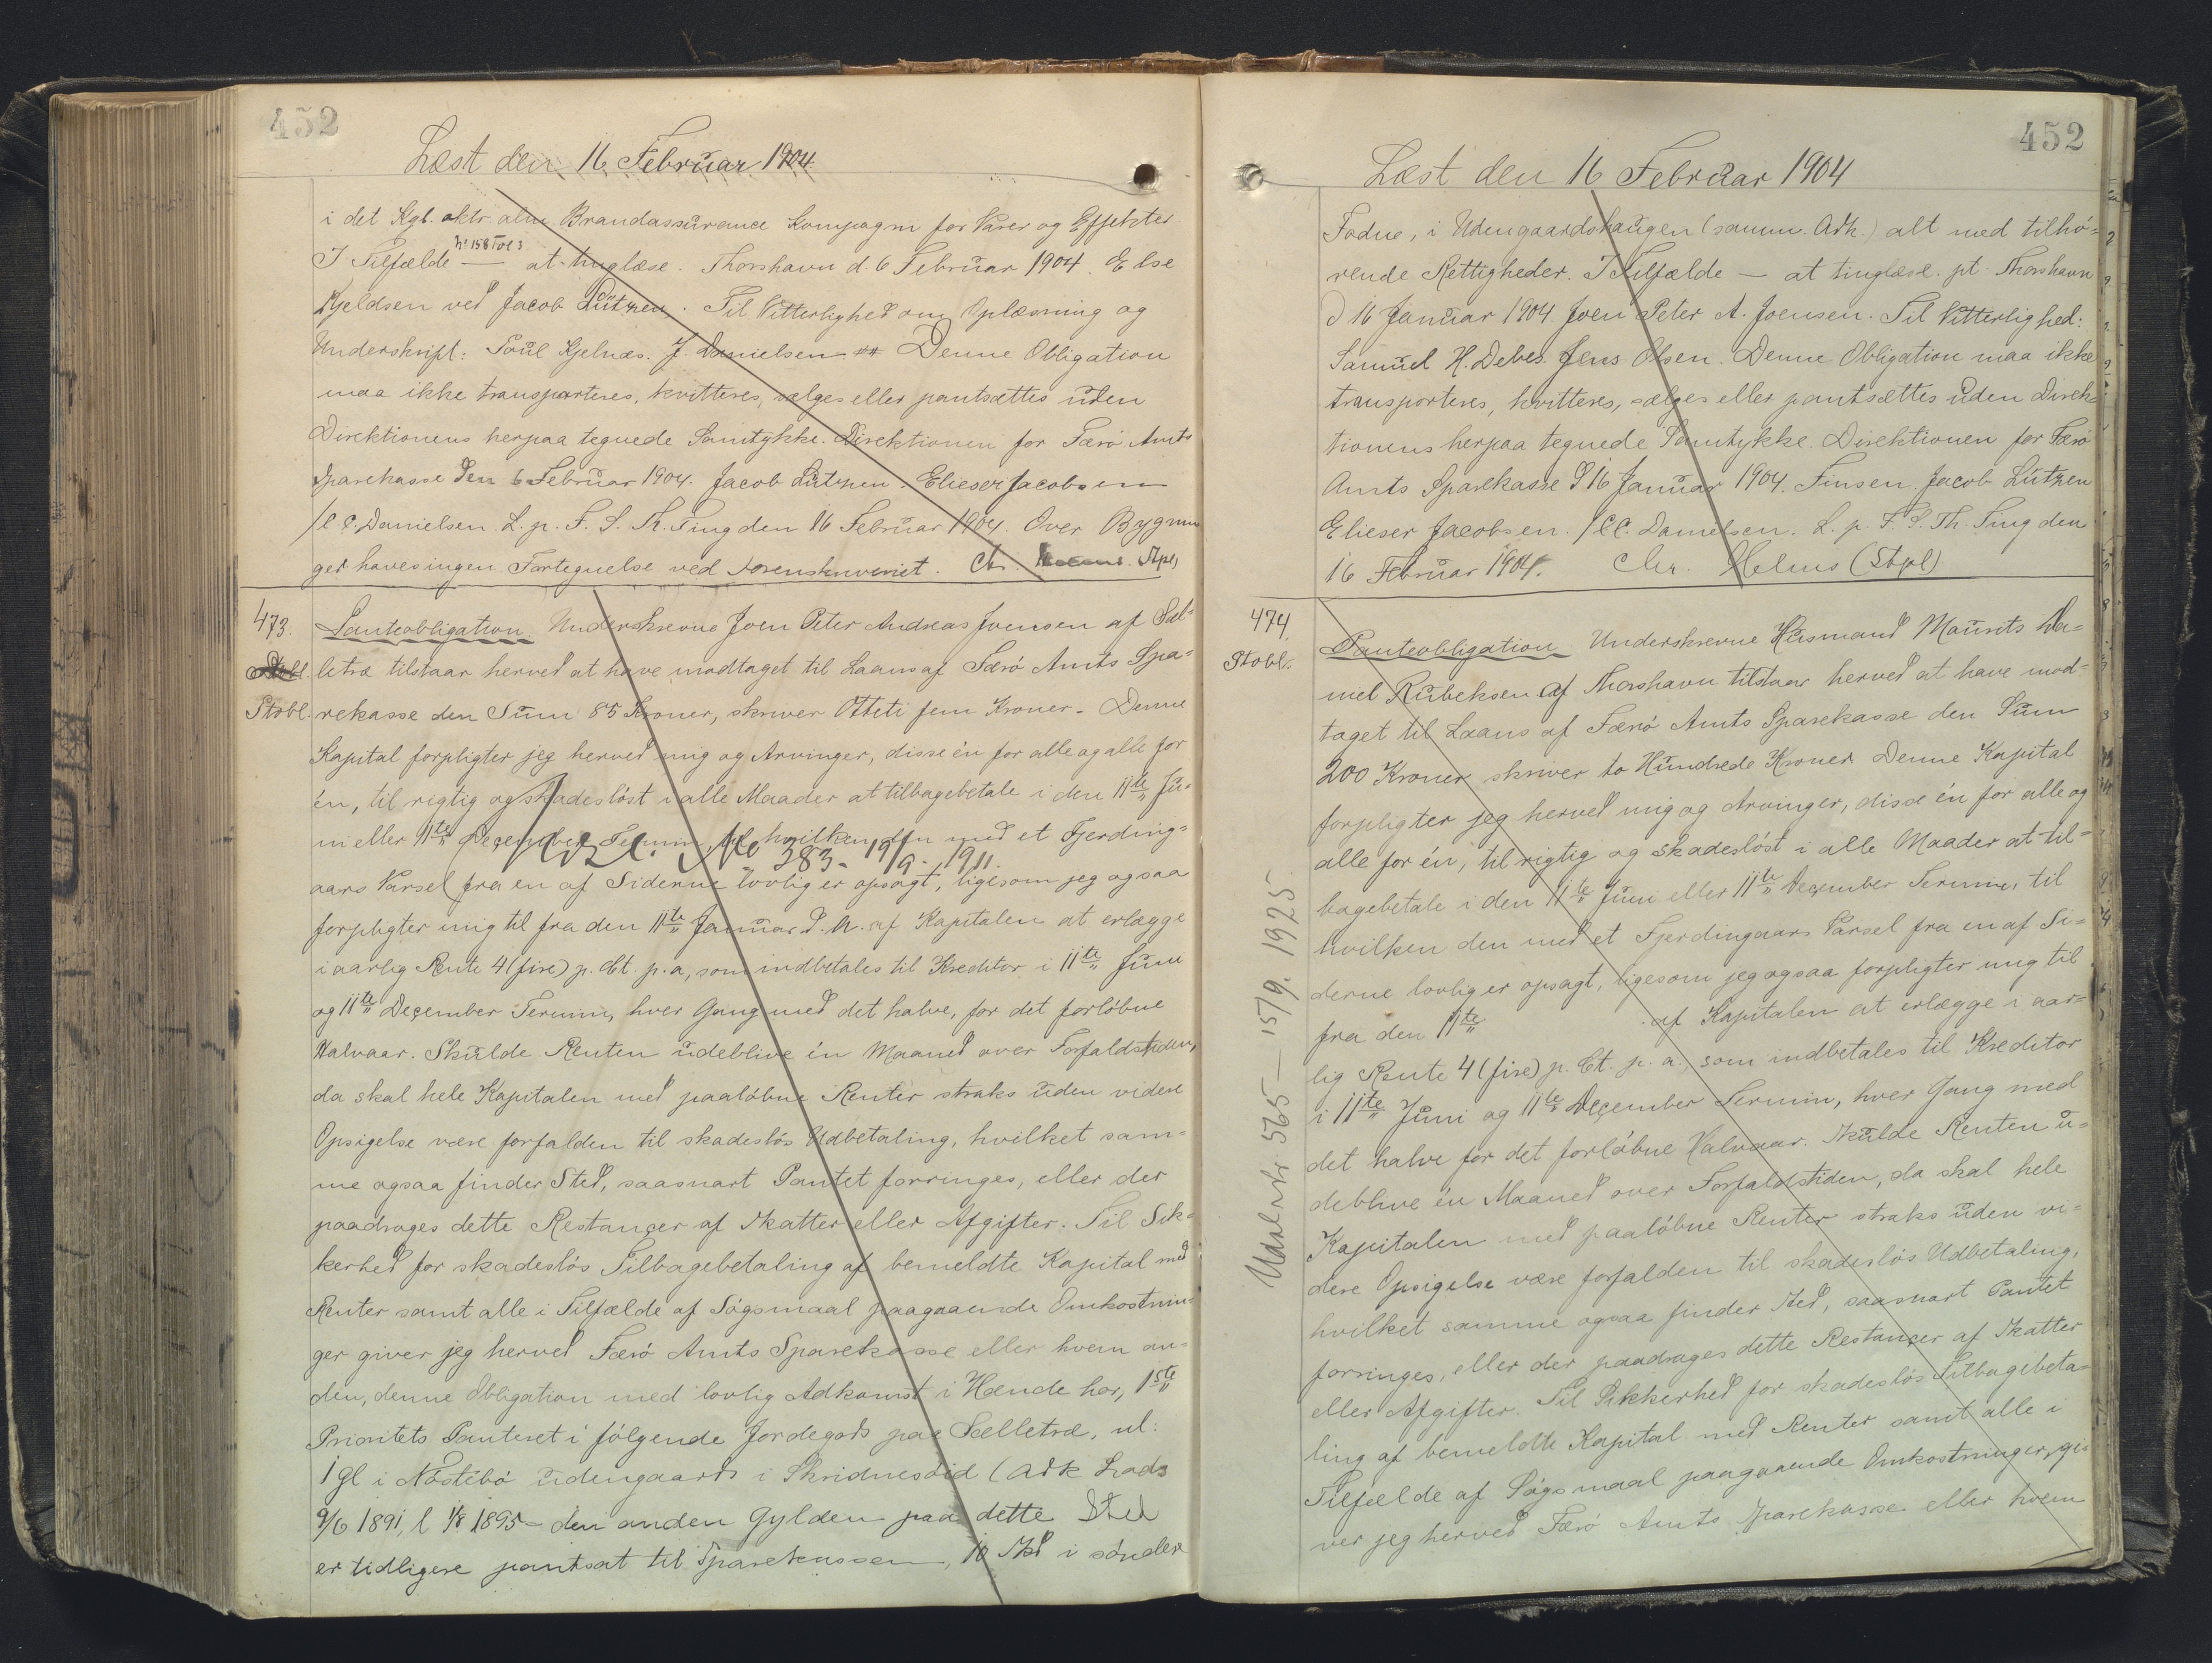 452
Læst den 16 Februar 1904
i det Kgl. oktr. alm Brandassürance Kompagni for Varer og Effekter
No 158 Fol 3
I Tilfælde — at tinglæse. Thorshavn d. 6 Februar 1904. Else
Kjeldsen ved Jacob Lützen. Til Vitterlighed om Oplæsning og
Underskrift: Poul Kjelnæs. J. Danielsen Denne Obligation
maa ikke transporteres, kvitteres, sælges eller pantsættes uden
Direktionens herpaa tegnede Samtykke. Direktionen for Færø Amts
Sparekasse den 6 Februar 1904. Jacob Lützen. Elieser Jacobsen
/C C. Danielsen. L. p. F. S. Th. Ting den 16 Februar 1904. Over Bygnin
ger haves ingen Fortegnelse ved Sorenskriveriet. Chr. Stpl)
473. Panteobligation Underskrevne Joen Peter Andreas Joensen af Sæl=
letræ tilstaar herved at have modtaget til Laans af Færø Amts Spa=
Stobl. rekasse den Sum 85 Kroner, skriver Otteti fem Kroner. Denne
Kapital forpligter jeg herved mig og Arvinger, disse én for alle og alle for
én, til rigtig og skadesløst i alle Maader at tilbagebetale i den 11te Ju=
ni eller 11te December Termin, til hvilken den med et Fjerding=
Udsl. No 383 - 19/9. 1911.
aars Varsel fra en af Siderne lovlig er opsagt, ligesom jeg ogsaa
forpligter mig til fra den 11te Januar d. A. af Kapitalen at erlægge
i aarlig Rente 4 (fire) p. Ct. p. a, som indbetales til Kreditor i 11te Juni
og 11te December Termin, hver Gang med det halve, for det forløbne
Halvaar. Skulde Renten udeblive én Maaned over Forfaldstiden,
da skal hele Kapitalen med paaløbne Renter straks uden videre
Opsigelse være forfalden til skadesløs Udbetaling, hvilket sam=
me ogsaa finder Sted, saasnart Pantet forringes, eller der
paadrages dette Restancer af Skatter eller Afgifter. Til Sik=
kerhed for skadesløs Tilbagebetaling af bemeldte Kapital med
Renter samt alle i Tilfælde af Søgsmaal paagaaende Omkostnin=
ger giver jeg herved Færø Amts Sparekasse eller hvem an=
den, denne Obligation med lovlig Adkomst i Hænde har, 1ste
Prioritets Panteret i følgende Jordegods paa Sælletræ, nl:
1 gl i Nóstibø udengaards i Skridnesóid (Adk
9/6 1891, l 1/8 1895 - den anden Gylden paa dette Sted
er tidligere pantsat til Sparekassen, 10 Skd i søndre
452
Læst den 16 Februar 1904
Fodne, i Udengaardshaugen (samm. Adk.) alt med tilhø=
rende Rettigheder. I Tilfælde — at tinglæse. pt. Thorshavn
d 16 Januar 1904. Joen Peter A. Joensen. Til Vitterlighed:
Samuel H. Debes. Jens Olsen. Denne Obligation maa ikke
transporteres, kvitteres, sælges eller pantsættes uden Direk=
tionens herpaa tegnede Samtykke. Direktionen for Færø
Amts Sparekasse d 16 Januar 1904. Finsen. Jacob Lützen
Elieser Jacobsen. / C C. Danielsen. L. p. F. S. Th. Ting den
16 Februar 1904. Chr. Helms (Stpl)
474. Panteobligation Underskrevne Husmand Maurits Da=
Stobl.
niel Rubeksen af Thorshavn tilstaar herved at have mod=
taget til Laans af Færø Amts Sparekasse den Sum
200 Kroner skriver to Hundrede Kroner Denne Kapital
forpligter jeg herved mig og Arvinger, disse én for alle og
alle for én, til rigtig og skadesløst i alle Maader at til=
bagebetale i den 11te Juni eller 11te December Termin, til
hvilken den med et Fjerdingaars Varsel fra en af Si=
derne lovlig er opsagt, ligesom jeg ogsaa forpligter mig til
fra den 11te af Kapitalen at erlægge i aar=
lig Rente 4 (fire) p. Ct. p. a., som indbetales til Kreditor
i 11te Juni og 11te December Termin, hver Gang med
det halve for det forløbne Halvaar. Skulde Renten u=
deblive én Maaned over Forfaldstiden, da skal hele
Kapitalen med paaløbne Renter straks uden vi=
dere Opsigelse være forfalden til skadesløs Udbetaling,
hvilket samme ogsaa finder Sted, saasnart Pantet
forringes, eller der paadrages dette Restancer af Skatter
eller Afgifter. Til Sikkerhed for skadesløs Tilbagebeta=
ling af bemeldte Kapital med Renter samt alle i
Tilfælde af Søgsmaal paagaaende Omkostninger, gi=
ver jeg herved Færø Amts Sparekasse eller hvem
Udsl. Nr. 565 — 15/9. 1925